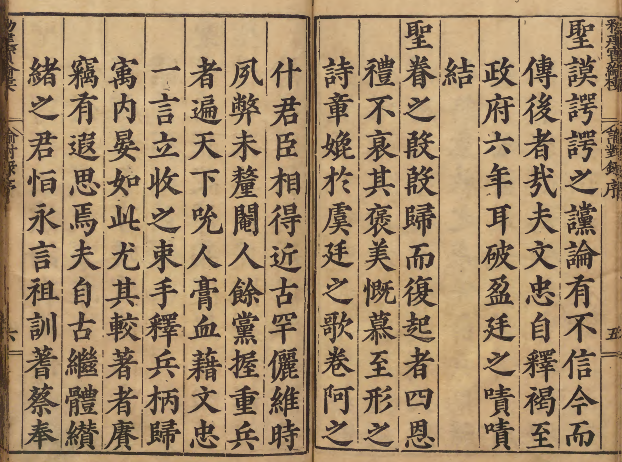 諭對錄序
五
聖謨諤諤之讜論有不信今而
傳後者㢤夫文忠自釋褐至
政府六年耳破盈廷之嘖嘖
結
聖眷之殷殷歸而復起者四恩
禮不衰其褒美慨慕至形之
詩章娩於虞廷之歌卷阿之
什君臣相得近古罕儷維時
夙弊未釐閹人餘黨握重兵
者遍天下吮人膏血藉文忠
一言立收之束手釋兵柄歸
寓内晏如此尤其較著者賡
竊有遐思焉夫自古繼體纉
緒之君恒永言祖訓著蔡奉
六